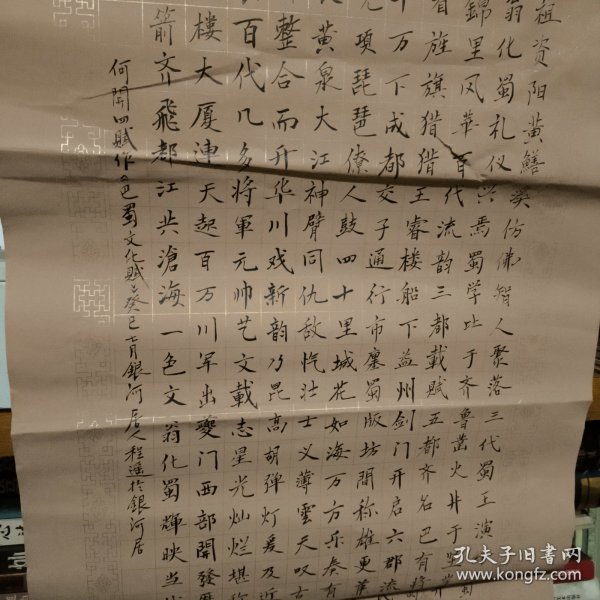 祖资阳黄鳝溪仿佛智人聚落三代蜀王演
翁化蜀礼仪兴焉蜀学比于齐鲁凿火井于
锦里风华百代流韵三都载赋五都齐名已有
旌旗猎猎王睿楼船下益州剑门开启六郡流
千万下成都交子通行市廛蜀版坊间称雄更
项琵琶僚人鼓四十里城花如海万方乐奏有
黄泉大江神臂同仇敌忾壮士义薄云天叹
整合而升华川戏新韵乃昆高胡弹灯爰及近
百代几多将军元帅艺文载志星光灿烂堪称
楼大厦连天起百万川军出夔门西部开发
箭齐飞都江共沧海一色文翁化蜀辉映当
何开四赋作巴蜀文化赋癸巳七月银河居人程遥于银河居
孔夫子旧书网
www.kongfz.com